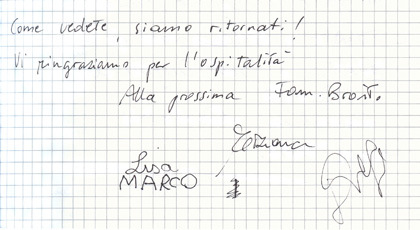 Come vedete, siamo ritornati!
Vi ringraziamo per l'ospitalità
Alla prossima Fam.
Tiziana
Lisa
MARCO